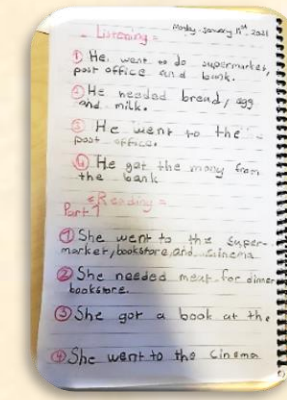 Monday - January 11st 2021
Listening =
① He went to do supermarket,
post office and bank.
② He needed bread, egg
and milk.
③ He went to the
post office.
④ He got the mony from
the bank
«Reading»
Part 1
① She went to the super-
market, bookstore, and cinema
② She needed meat for dinner
bookstore.
③ She got a book at the
④ She went to the cinema